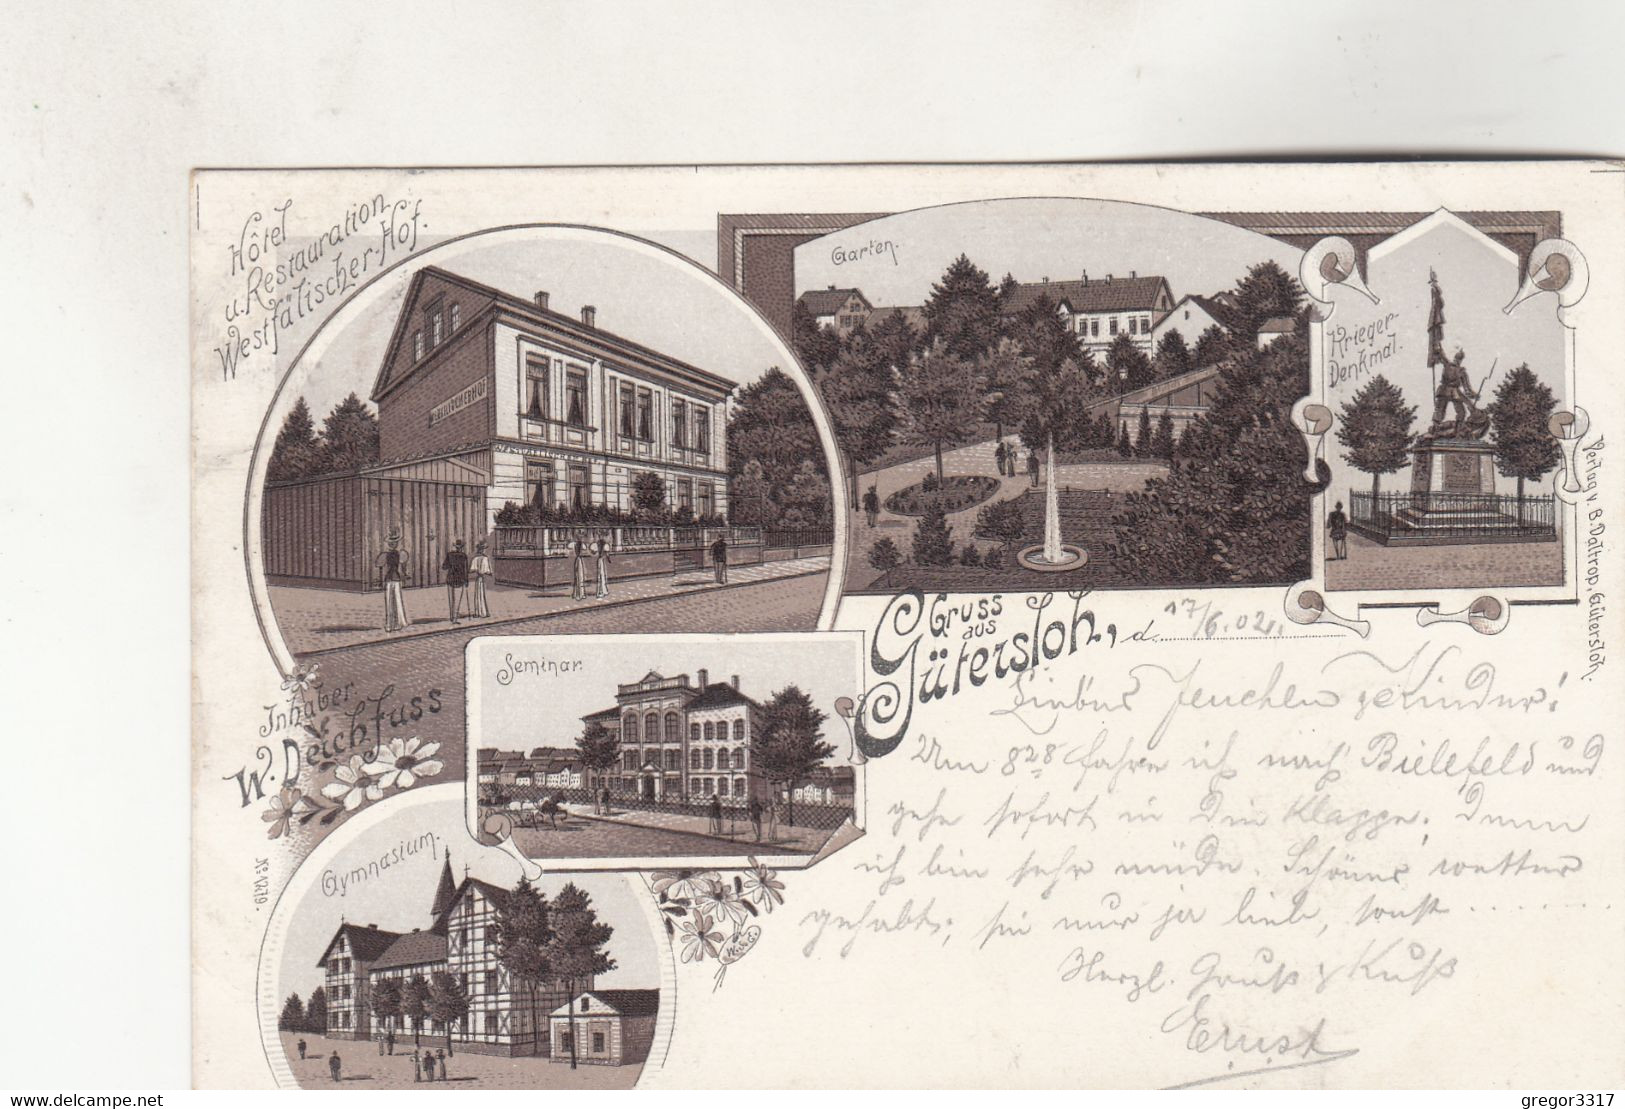 Hôtel
u. Restauration
Westfälischer-Hof.
Garten.
Krieger-
Denkmal.
Verlag v. B. Daltrop, Gütersloh.
Gruss
aus
Gütersloh, d. 17/6.02.
Seminar.
Inhaber
W. Deichfuss
Gymnasium.
No. 12179.
W. & G.
Liebes Jenchen & Kinder!
Um 8 28 fahre ich nach Bielefeld und
gehe sofort in Die Klappe; denn
ich bin sehr müde. Schönes wetter
gehabt; sei nur ja lieb, sonst ........
Herzl. Gruß & Kuß
Ernst
gregor3317